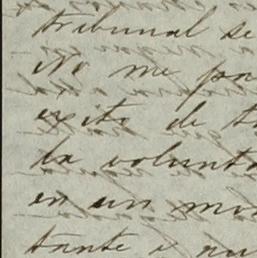 tribunal se
No me pa
exito de t
la volunta
en un mo
tante i au